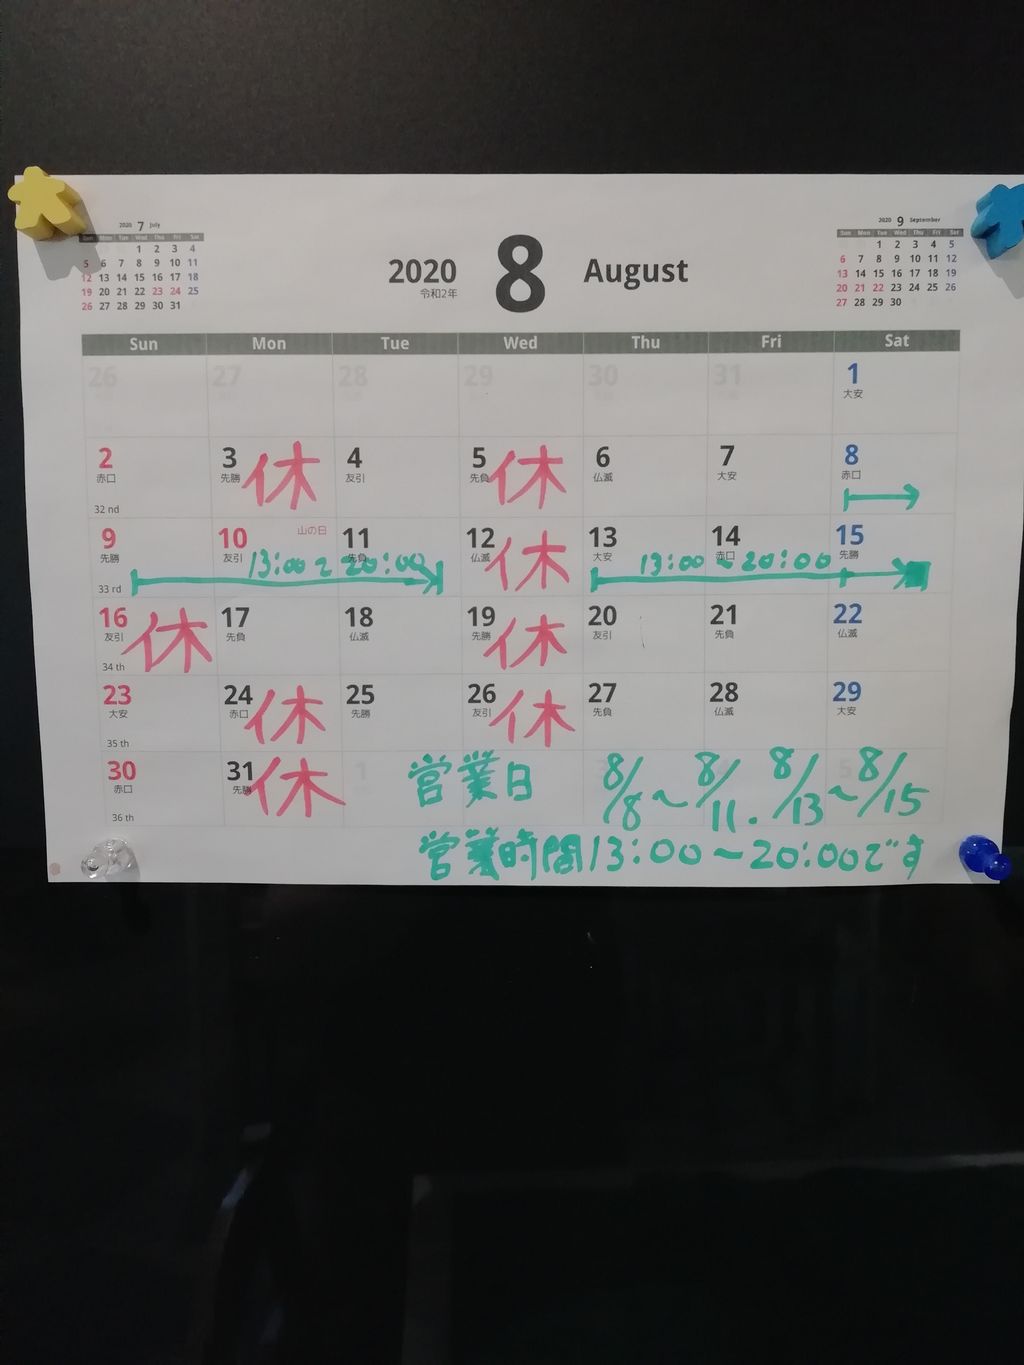 2020 7 July
Sun Mon Tue Wed Thu Fri Sat
1 2 3 4
5 6 7 8 9 10 11
12 13 14 15 16 17 18
19 20 21 22 23 24 25
26 27 28 29 30 31
2020 8 August
令和2年
2020 9 September
Sun Mon Tue Wed Thu Fri Sat
1 2 3 4 5
6 7 8 9 10 11 12
13 14 15 16 17 18 19
20 21 22 23 24 25 26
27 28 29 30
Sun Mon Tue Wed Thu Fri Sat
26 27 28 29 30 31 1
大安
2 3 休 4 5 休 6 7 8
赤口 先勝 友引 先負 仏滅 大安 赤口
32 nd
9 10 山の日 11 12 休 13 14 15
先勝 友引 先負 仏滅 大安 赤口 先勝
13:00~20:00 13:00~20:00
33 rd
16 休 17 18 19 休 20 21 22
友引 先負 仏滅 先勝 友引 先負 仏滅
34 th
23 24 休 25 26 休 27 28 29
大安 赤口 先勝 友引 先負 仏滅 大安
35 th
30 31 休 1
赤口 先勝
36 th
営業日 8/8~8/11.8/13~8/15
営業時間13:00~20:00です